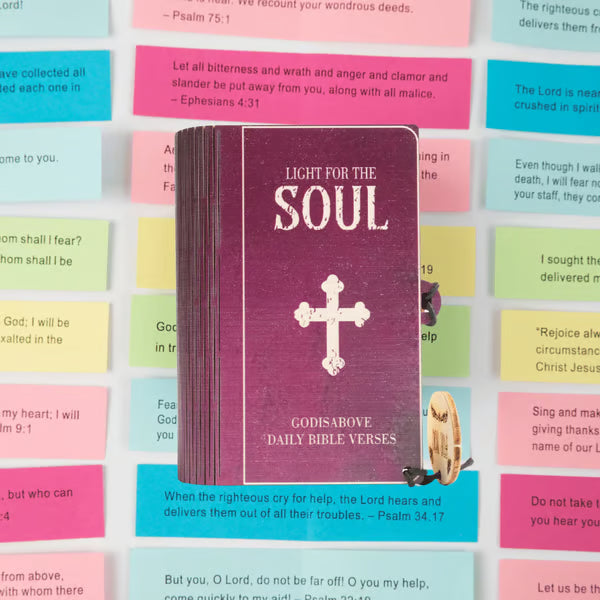 Lord!
We recount your wondrous deeds.
– Psalm 75:1
The righteous c
delivers them fro
ave collected all
ted each one in
Let all bitterness and wrath and anger and clamor and
slander be put away from you, along with all malice.
– Ephesians 4:31
The Lord is near
crushed in spirit
ome to you.
ning in
the
Fa
the
Even though I walk
death, I will fear no
your staff, they com
LIGHT FOR THE
SOUL
GODISABOVE
DAILY BIBLE VERSES
hom shall I fear?
hom shall I be
19
I sought the
delivered m
God; I will be
exalted in the
God
in tr
elp
"Rejoice alw
circumstanc
Christ Jesus
my heart; I will
lm 9:1
Fear
God
you
Sing and mak
giving thanks
name of our L
, but who can
:4
When the righteous cry for help, the Lord hears and
delivers them out of all their troubles. – Psalm 34.17
Do not take t
you hear you
from above,
with whom there
But you, O Lord, do not be far off! O you my help,
come quickly to my aid! – Psalm 22:19
Let us be th